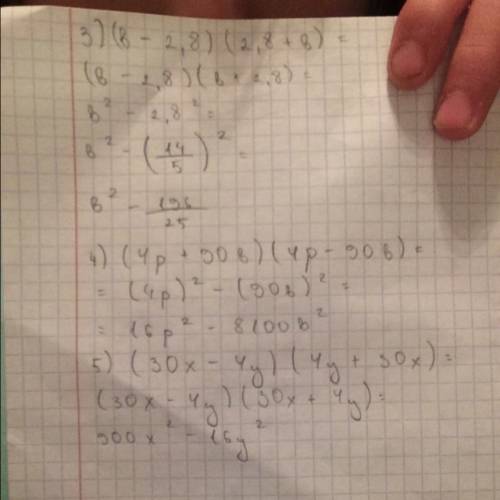 3) (в - 2,8) (2,8 + в) =
(в - 2,8) (в + 2,8) =
в² - 2,8² =
в² - (14/5)² =
в² - 196/25
4) (4p + 90в) (4p - 90в) =
= (4p)² - (90в)² =
= 16p² - 8100в²
5) (30x - 4y) (4y + 30x) =
(30x - 4y) (30x + 4y) =
900x² - 16y²